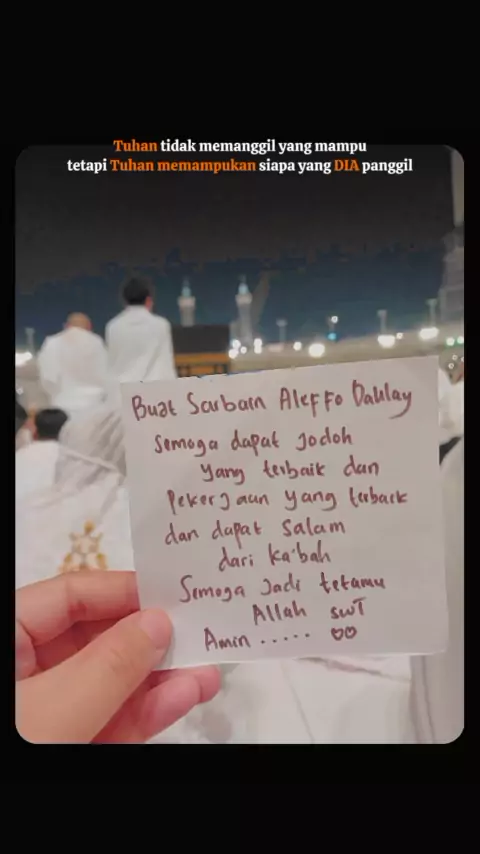 Tuhan tidak memanggil yang mampu
tetapi Tuhan memampukan siapa yang DIA panggil
Buat Sarbarn Aleffo Dahlay
Semoga dapat Jodoh
yang terbaik dan
Pekerjaan yang terbaik
dan dapat Salam
dari Ka'bah
Semoga Jadi tetamu
Allah SWT
Amin .....